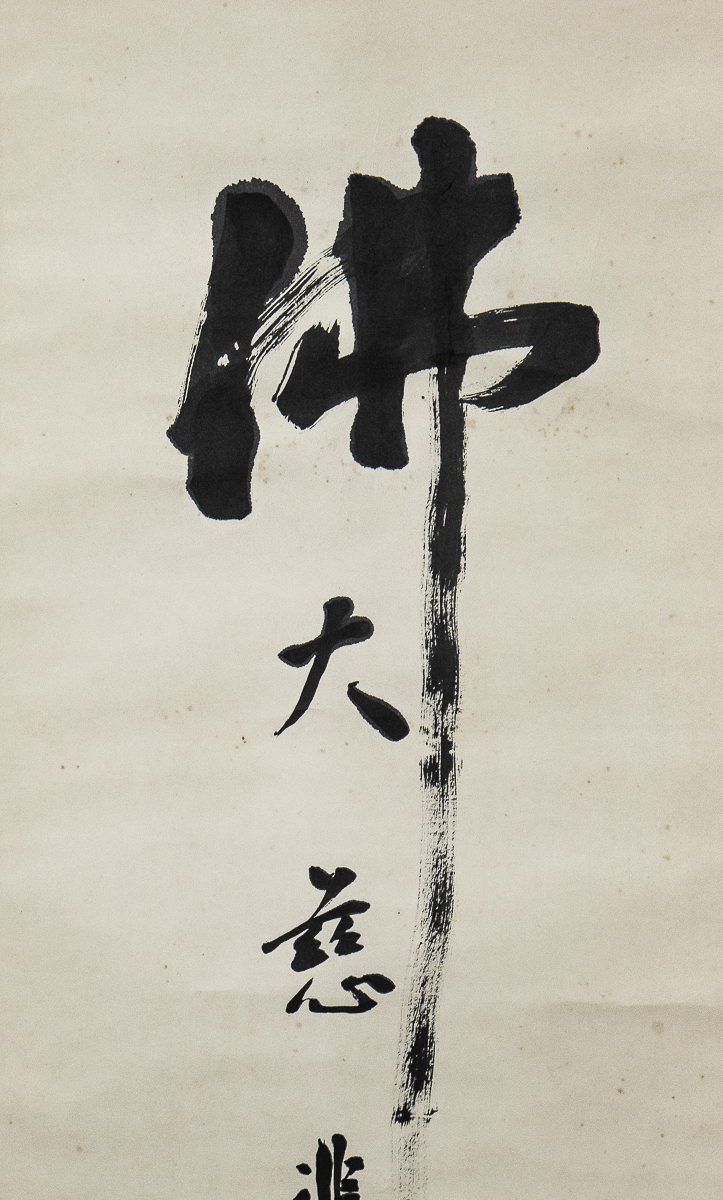 佛
大慈